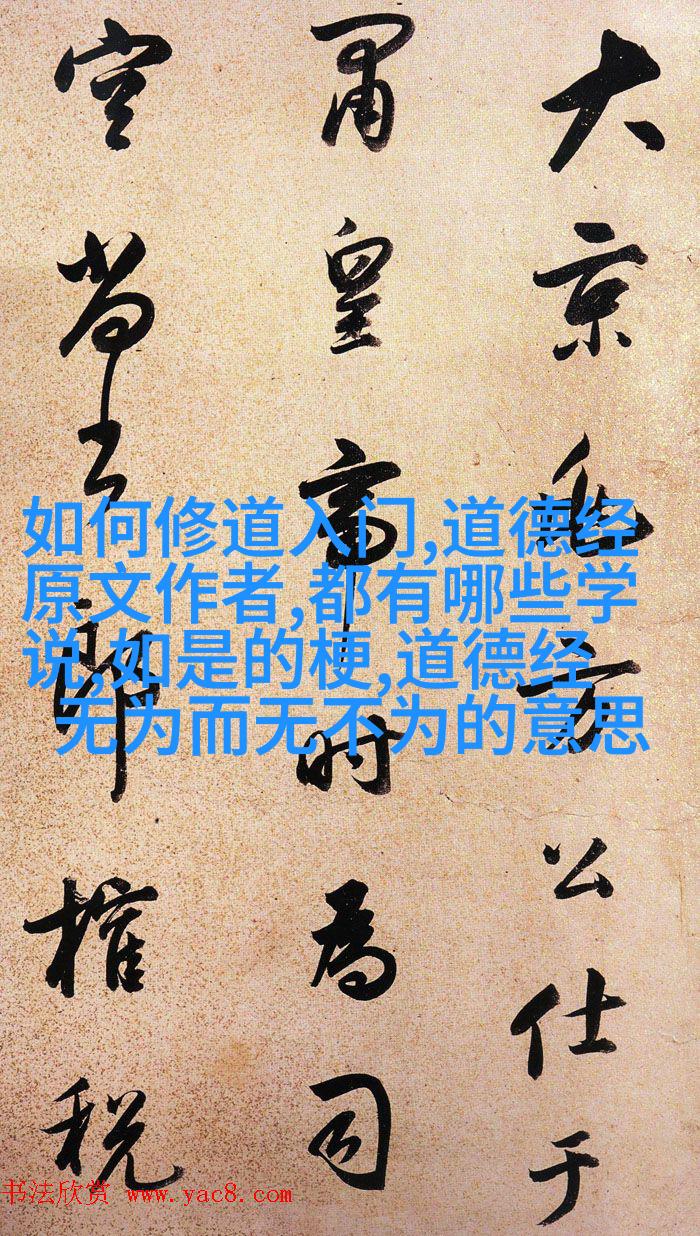 大京兆方公仕于
肅皇帝時為司
空尚書郎榷税
如何修道入门,道德经
原文作者,都有哪些学
说,如是的梗,道德经
无为而无不为的意思
书法欣赏 www.yac8.com